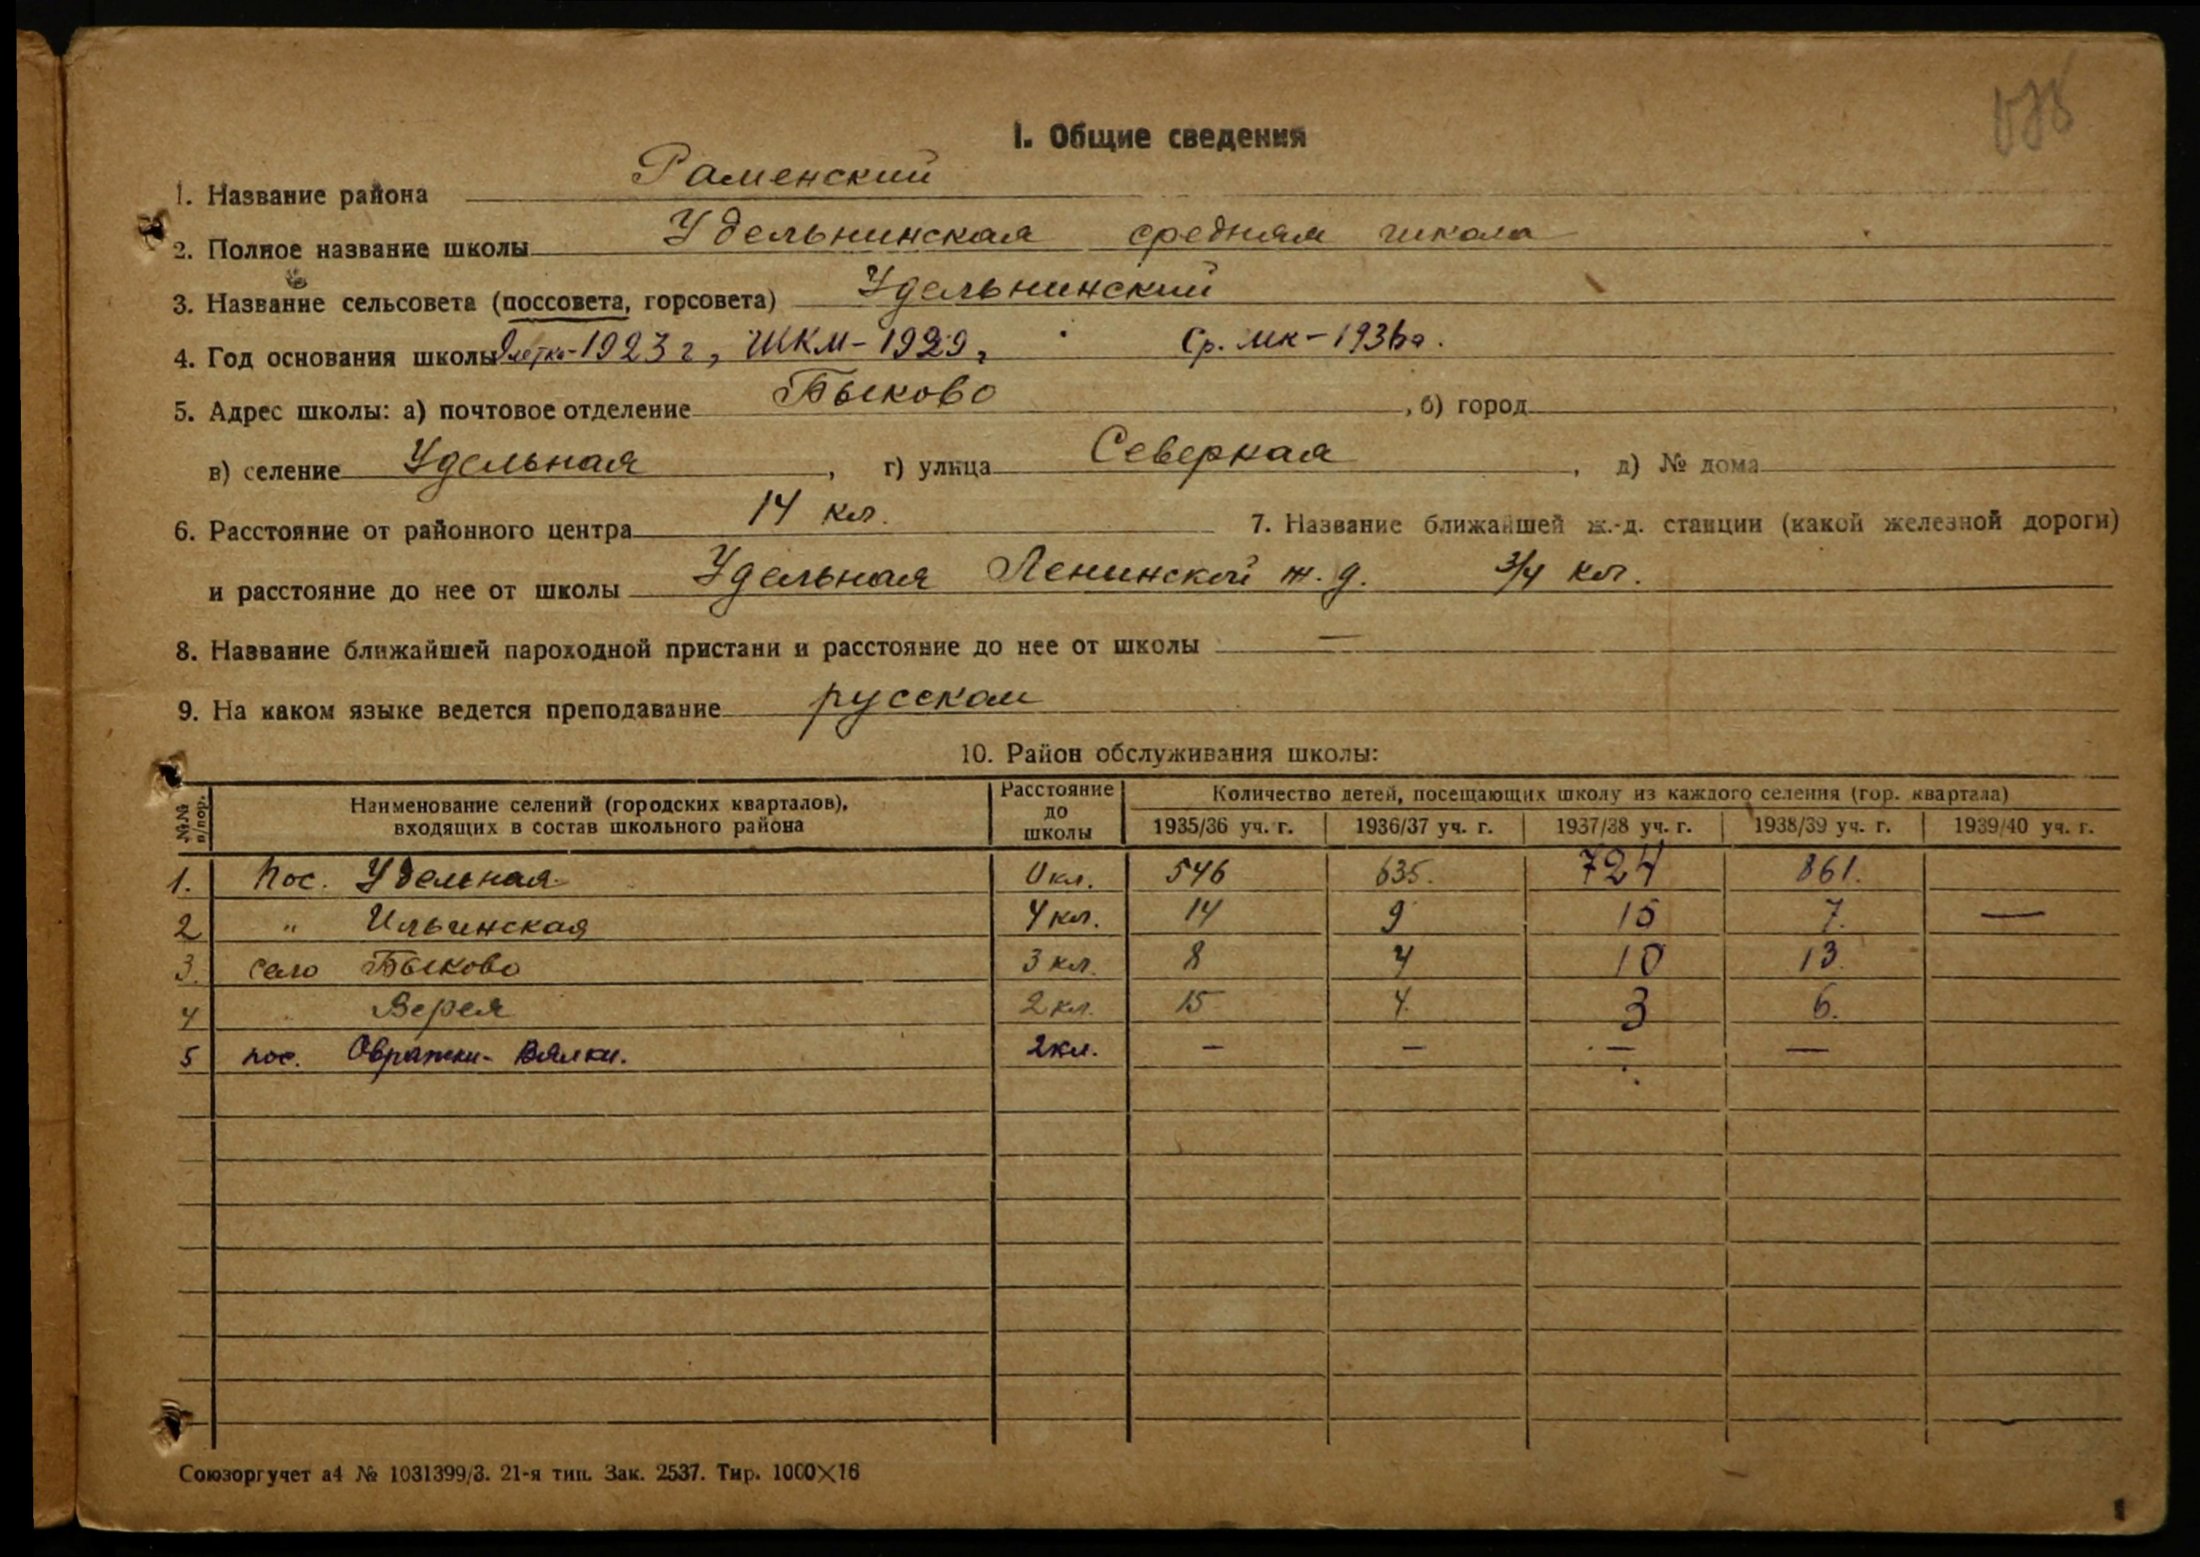 I. Общие сведения
1. Название района Раменский
2. Полное название школы Удельнинская средняя школа
3. Название сельсовета (поссовета, горсовета) Удельнинский
4. Год основания школы 9летка-1923 г, ШКМ-1929, Ср. шк-1936г.
5. Адрес школы: а) почтовое отделение Быково, б) город
в) селение Удельная, г) улица Северная, д) № дома
6. Расстояние от районного центра 14 км. 7. Название ближайшей ж.-д. станции (какой железной дороги)
и расстояние до нее от школы Удельная Ленинской ж.д. 3/4 км.
8. Название ближайшей пароходной пристани и расстояние до нее от школы —
9. На каком языке ведется преподавание русском
10. Район обслуживания школы:
№№ п/пор. Наименование селений (городских кварталов), входящих в состав школьного района Расстояние до школы Количество детей, посещающих школу из каждого селения (гор. квартала)
1935/36 уч. г. 1936/37 уч. г. 1937/38 уч. г. 1938/39 уч. г. 1939/40 уч. г.
1. пос. Удельная 0 км. 546 635. 724 861.
2 " Ильинская 4 км. 14 9 15 7. —
3. село Быково 3 км. 8 4 10 13.
4 " Верея 2 км. 15 4. 3 6.
5 пос. Овражки-Вялки. 2 км. — — — —
Союзоргучет а4 № 1031399/3. 21-я тип. Зак. 2537. Тир. 1000×16